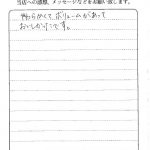 当店への感想、メッセージなどをお願い致します。
やわらかくて、ボリュームがあって
おいしかったです。